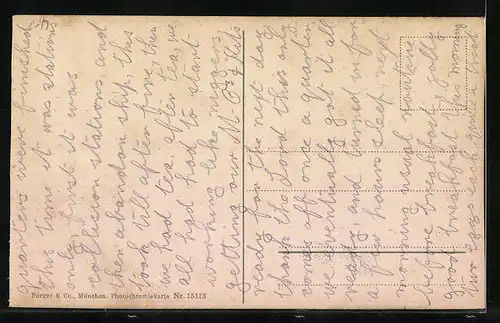 quarters were finished,
this time it was stations
only, first it was
collision stations, and
then abandon ship, this
took till after five, then
we had tea, after tea, we
all had had to start
working like niggers,
getting our
ready for the next day
thank the Lord this only
comes off once a quarter.
we eventually got it all
ready, and turned in for
a few hours sleep, next
morning usual routine
before breakfast,
good breakfast this morning
two eggs each
Purger & Co., München. Photochromiekarte Nr. 15113